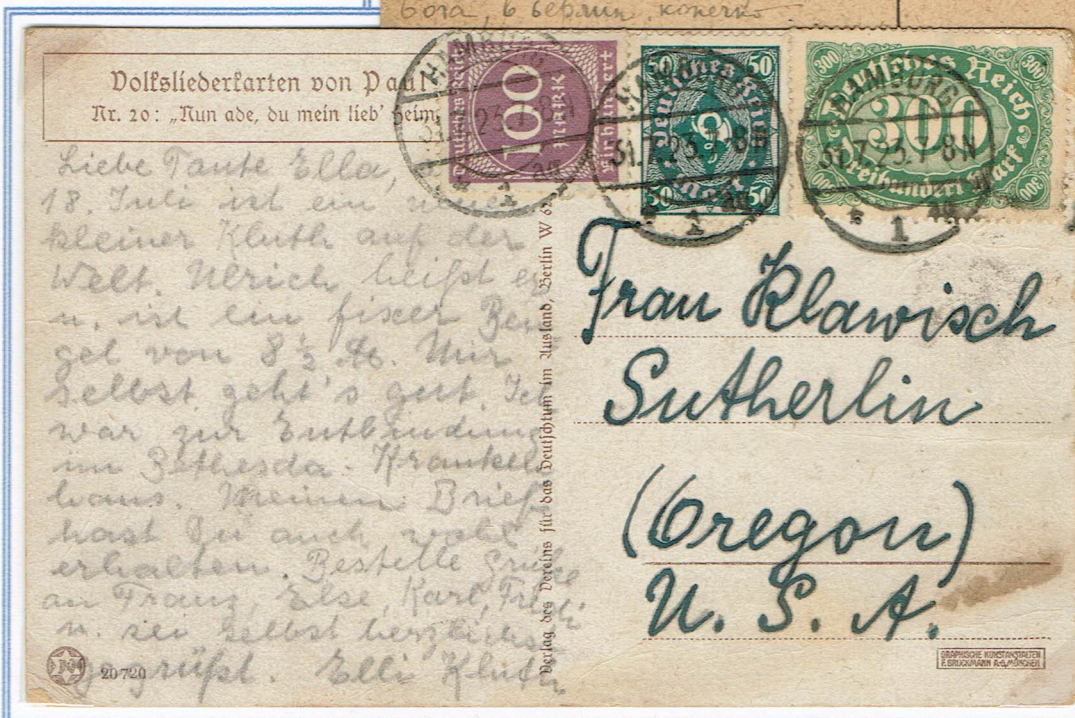 бога, в Берлин, конечно
Volksliederkarten von Paul
Nr. 20: „Nun ade, du mein lieb' Heim
Liebe Tante Ella,
18. Juli ist ein
kleiner Kluth auf der
Welt. Ulrich heißt er
u. ist ein fixer Ben
gel von 8 ½ ℔. Mir
selbst geht's gut. Ich
war zur Entbindung
im Bethesda-Kranken
haus. Meinen Brief
hast Du auch wohl
erhalten. Bestelle Grüße
an Franz, Else, Karl,
u. sei selbst herzlichst
gegrüßt. Elli Kluth
20720
Verlag des Vereins für das Deutschtum im Ausland, Berlin W 62
Deutsches Reich
100
MARK
Einhundert
HAMBURG
31.7.23.7-8N
1
50 50
Deutsches Reich
Mark
50 50
HAMBURG
31.7.23.7-8N
1
300 300
Deutsches Reich
300
Dreihundert Mark
300 300
HAMBURG
31.7.23.7-8N
1
Frau Klawisch
Sutherlin
(Oregon)
U. S. A.
GRAPHISCHE KUNSTANSTALTEN
F. BRUCKMANN A-G, MÜNCHEN